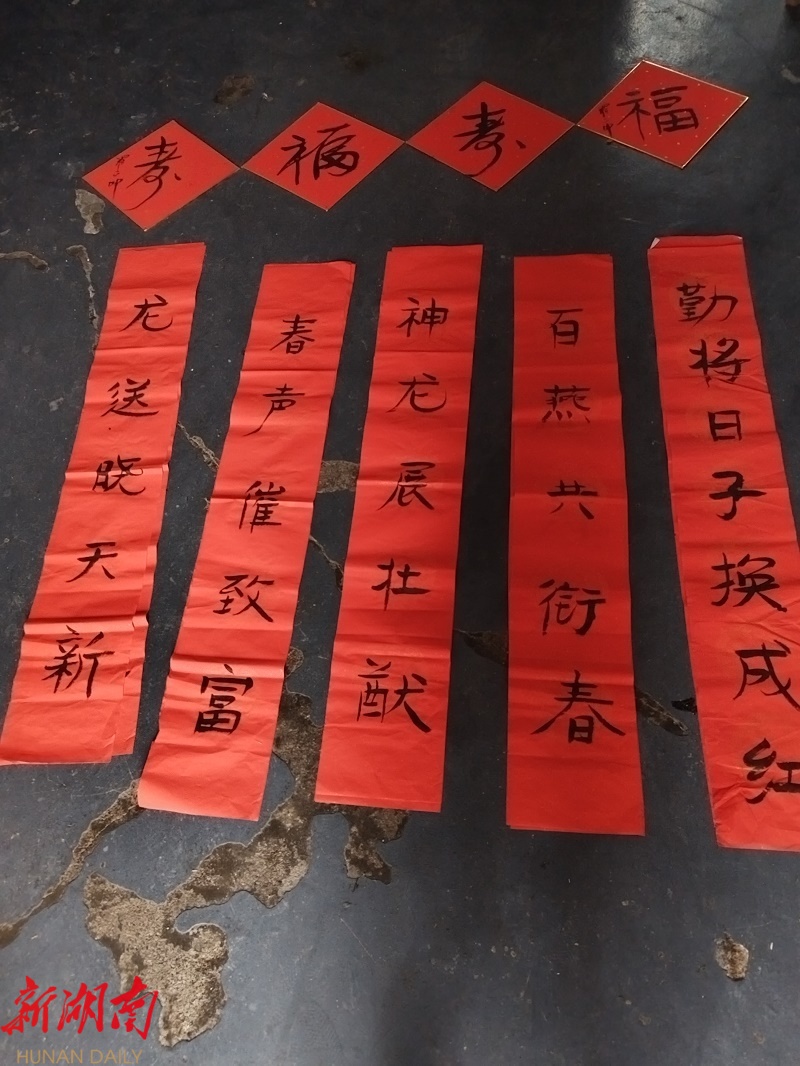 寿
福
寿
福
龙送晓天新
春声催致富
神龙展壮猷
百燕共衔春
勤将日子换成红
新湖南
HUNAN DAILY